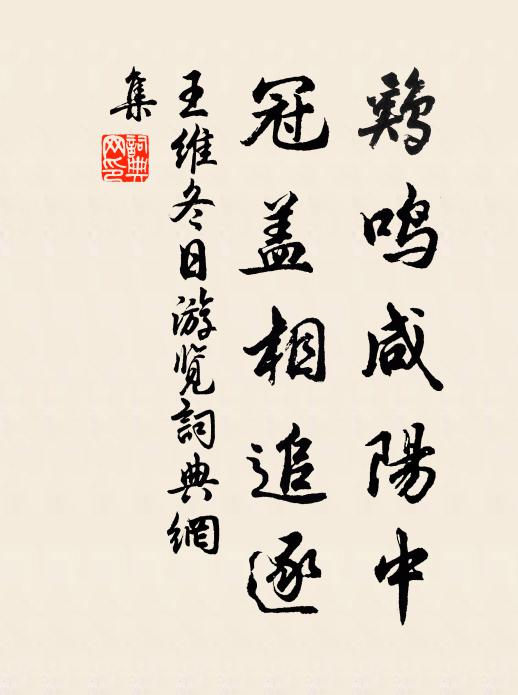 鷄鸣咸陽中
冠盖相追逐
王维冬日游览詞典網
集
詞典
网印